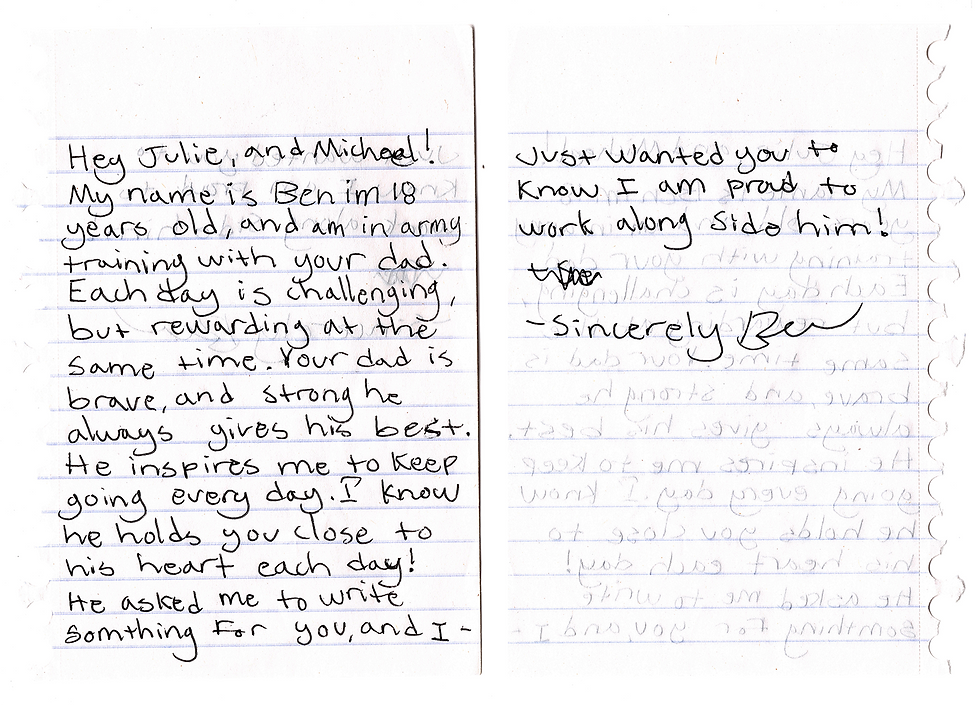 Hey Julie, and Michael!
My name is Ben im 18
years old, and am in army
training with your dad.
Each day is challenging,
but rewarding at the
same time. Your dad is
brave, and strong he
always gives his best.
He inspires me to keep
going every day. I know
he holds you close to
his heart each day!
He asked me to write
somthing For you, and I -
Just wanted you to
know I am proud to
work along side him!
-Sincerely Ben